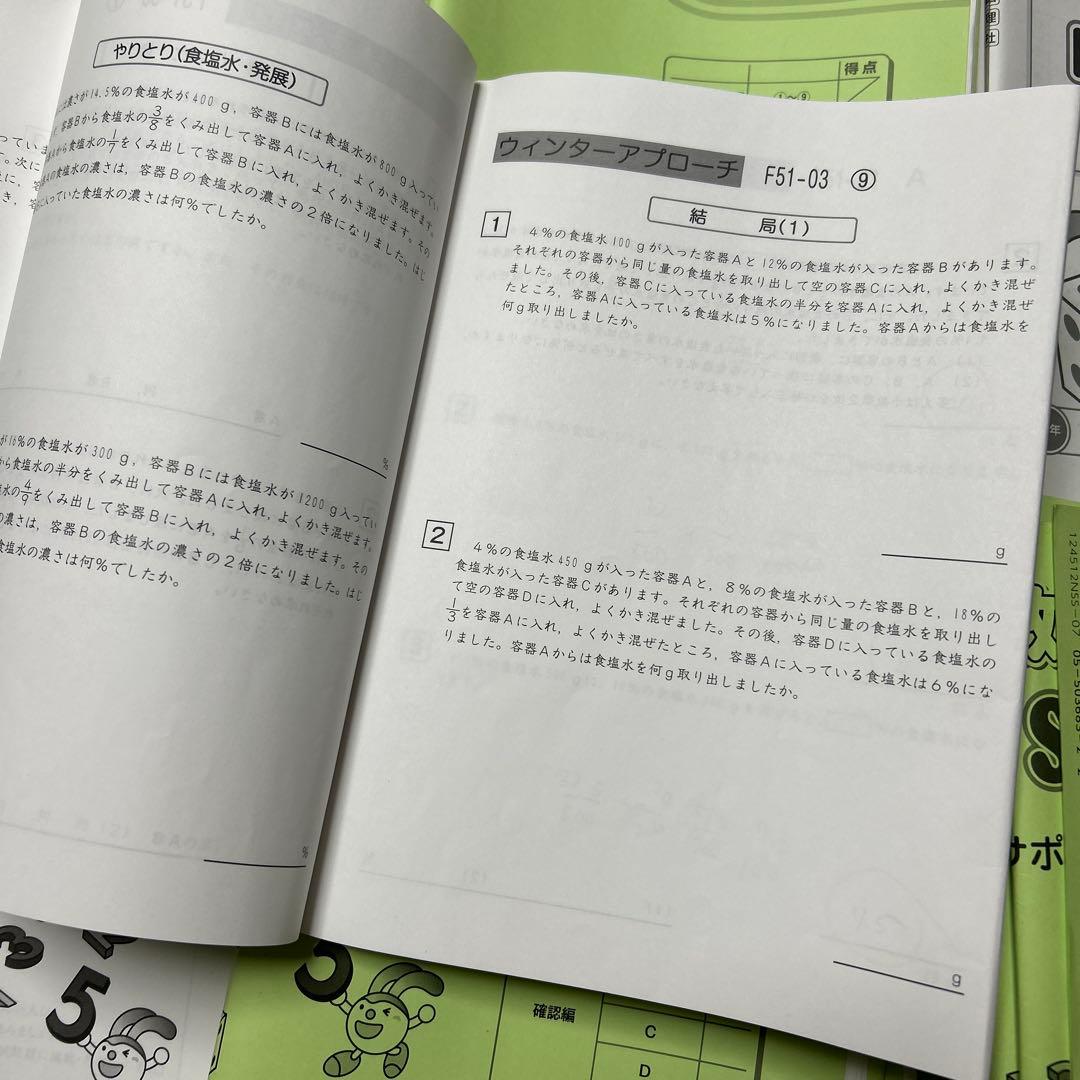 やりとり(食塩水・発展)
は濃さが14.5%の食塩水が400g，容器Bには食塩水が800g入ってい
容器Bから食塩水の3/8をくみ出して容器Aに入れ，よくかき混ぜます。
から食塩水の1/7をくみ出して容器Bに入れ，よくかき混ぜます。その
の食塩水の濃さは，容器Bの食塩水の濃さの2倍になりました。はじ
に入っていた食塩水の濃さは何%でしたか。
%
が16%の食塩水が300g，容器Bには食塩水が1200g入ってい
から食塩水の半分をくみ出して容器Aに入れ，よくかき混ぜます。
水の4/9をくみ出して容器Bに入れ，よくかき混ぜます。その
の濃さは，容器Bの食塩水の濃さの2倍になりました。はじ
食塩水の濃さは何%でしたか。
%
得点
①～⑨
ウィンターアプローチ F51-03 ⑨
結 局(1)
1 4%の食塩水100gが入った容器Aと12%の食塩水が入った容器Bがあります。
それぞれの容器から同じ量の食塩水を取り出して空の容器Cに入れ，よくかき混ぜ
ました。その後，容器Cに入っている食塩水の半分を容器Aに入れ，よくかき混ぜ
たところ，容器Aに入っている食塩水は5%になりました。容器Aからは食塩水を
何g取り出しましたか。
g
2 4%の食塩水450gが入った容器Aと，8%の食塩水が入った容器Bと，18%の
食塩水が入った容器Cがあります。それぞれの容器から同じ量の食塩水を取り出し
て空の容器Dに入れ，よくかき混ぜました。その後，容器Dに入っている食塩水の
1/3を容器Aに入れ，よくかき混ぜたところ，容器Aに入っている食塩水は6%にな
りました。容器Aからは食塩水を何g取り出しましたか。
g
年
124512N55-07
サポ
3
5
5
確認編
C
D